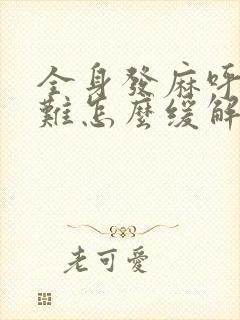 全身發麻呼
難怎麼緩解
老可愛